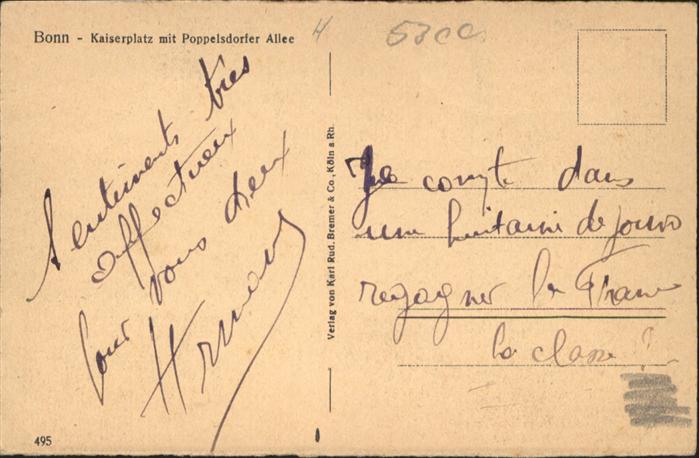 Bonn - Kaiserplatz mit Poppelsdorfer Allee
53cc
Sentiments très
affectueux
pour vous deux
Verlag von Karl Rud. Bremer & Co., Köln a. Rh.
Je compte dans
une huitaine de jours
regagner la France
la classe !
495